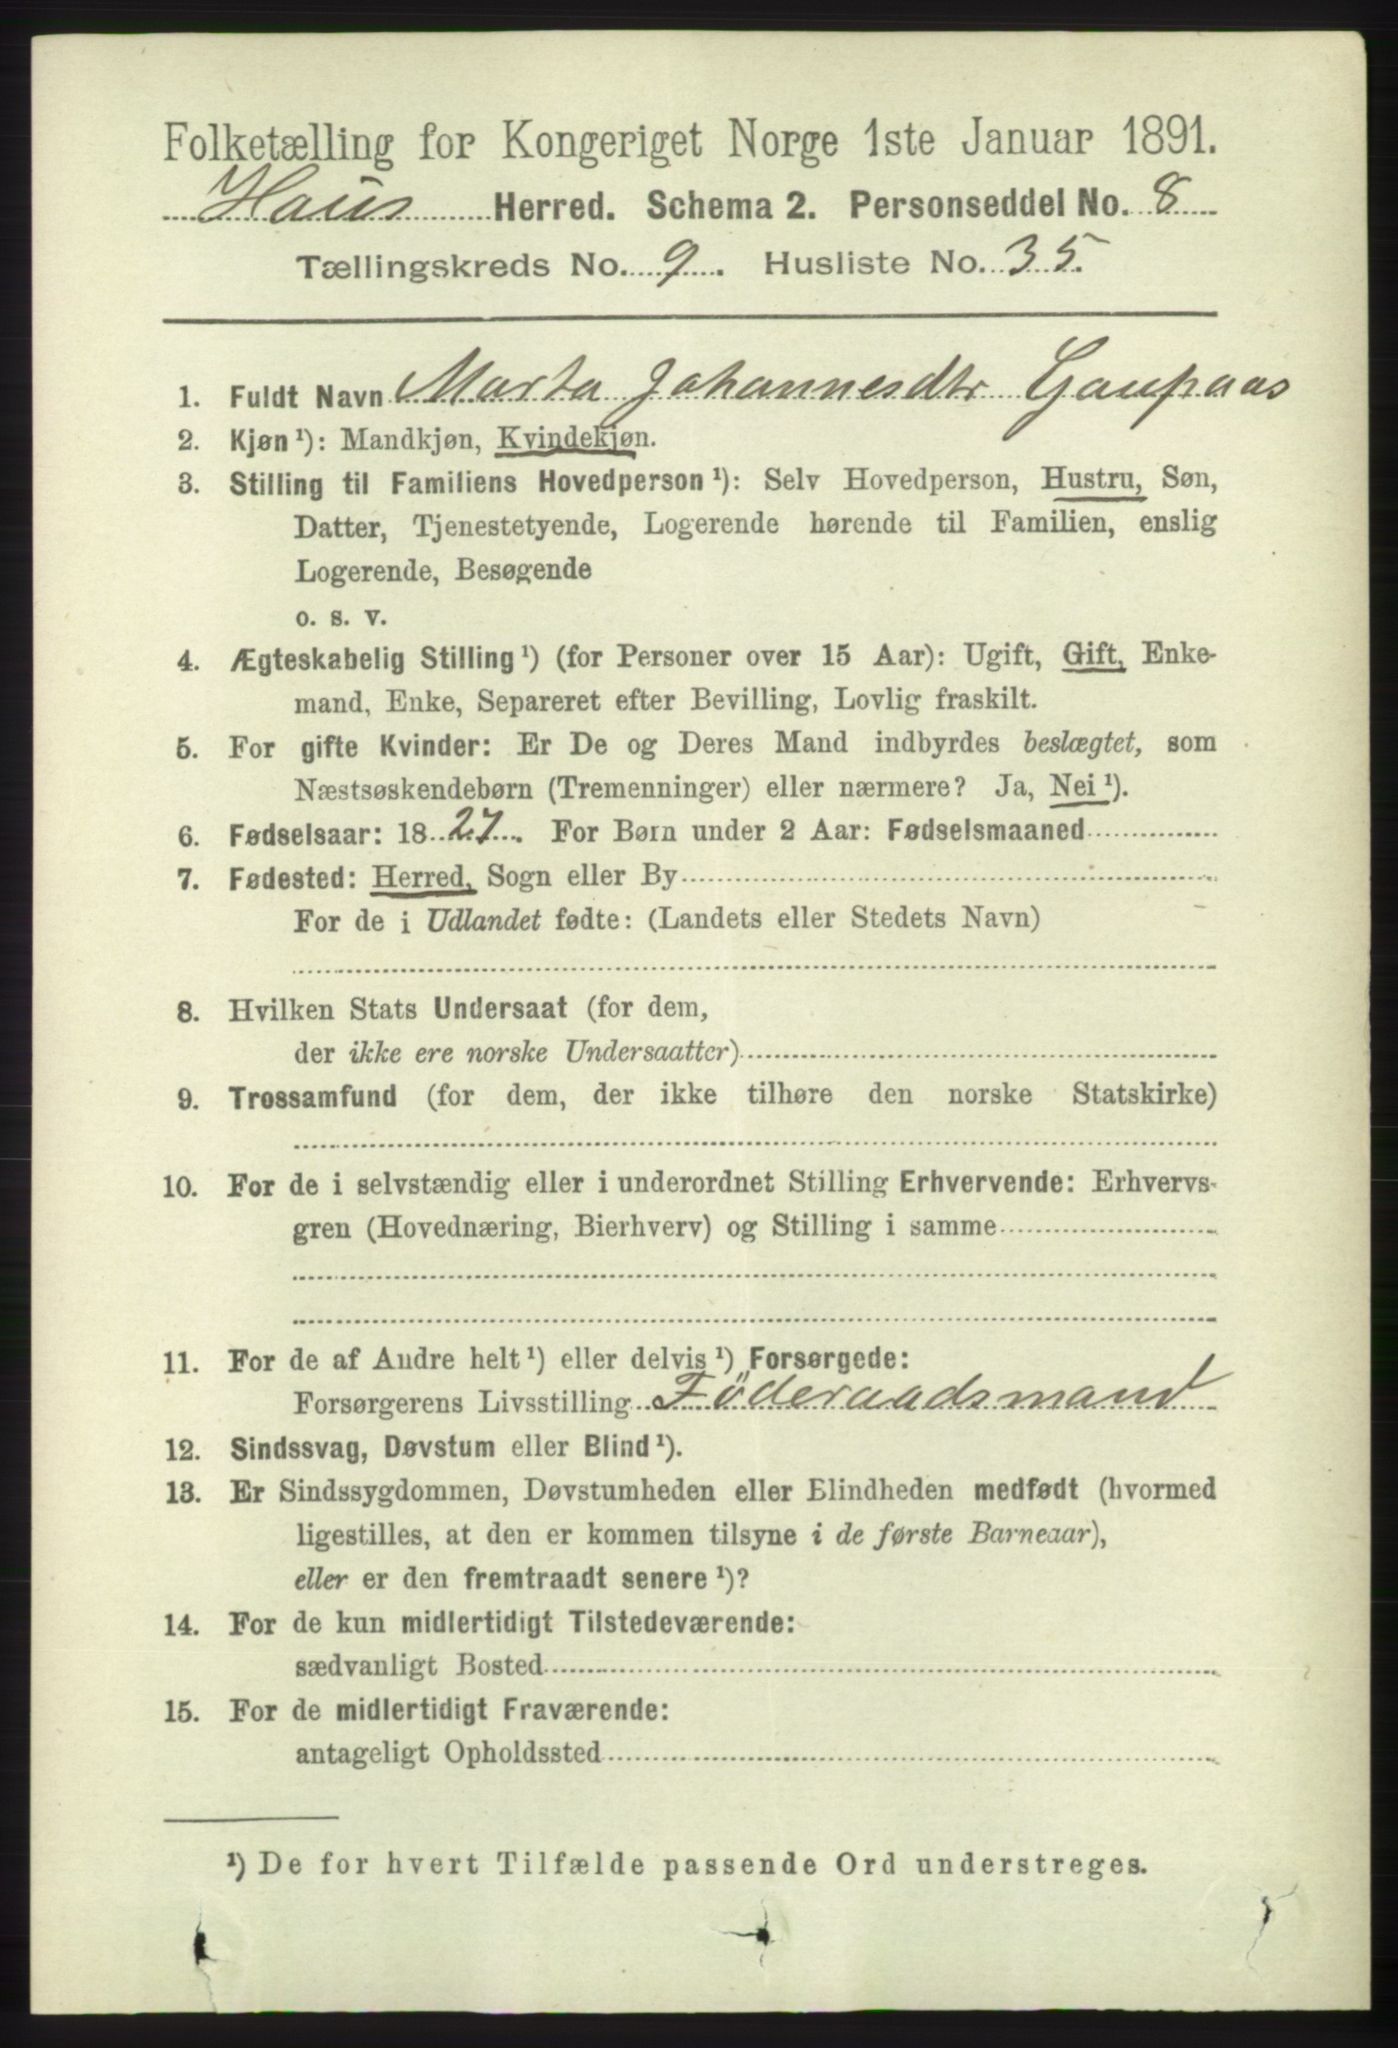 Folketælling for Kongeriget Norge 1ste Januar 1891.
Haus Herred. Schema 2. Personseddel No. 8
Tællingskreds No. 9. Husliste No. 35.
1. Fuldt Navn Marta Johannesdtr Gaupaas
2. Kjøn ¹): Mandkjøn, Kvindekjøn.
3. Stilling til Familiens Hovedperson ¹): Selv Hovedperson, Hustru, Søn,
Datter, Tjenestetyende, Logerende hørende til Familien, enslig
Logerende, Besøgende
o. s. v.
4. Ægteskabelig Stilling ¹) (for Personer over 15 Aar): Ugift, Gift, Enke-
mand, Enke, Separeret efter Bevilling, Lovlig fraskilt.
5. For gifte Kvinder: Er De og Deres Mand indbyrdes beslægtet, som
Næstsøskendebørn (Tremenninger) eller nærmere? Ja, Nei ¹).
6. Fødselsaar: 1827. For Børn under 2 Aar: Fødselsmaaned
7. Fødested: Herred, Sogn eller By
For de i Udlandet fødte: (Landets eller Stedets Navn)
8. Hvilken Stats Undersaat (for dem,
der ikke ere norske Undersaatter)
9. Trossamfund (for dem, der ikke tilhøre den norske Statskirke)
10. For de i selvstændig eller i underordnet Stilling Erhvervende: Erhvervs-
gren (Hovednæring, Bierhverv) og Stilling i samme
11. For de af Andre helt ¹) eller delvis ¹) Forsørgede:
Forsørgerens Livsstilling Föderaadsmand
12. Sindssvag, Døvstum eller Blind ¹).
13. Er Sindssygdommen, Døvstumheden eller Blindheden medfødt (hvormed
ligestilles, at den er kommen tilsyne i de første Barneaar),
eller er den fremtraadt senere ¹)?
14. For de kun midlertidigt Tilstedeværende:
sædvanligt Bosted
15. For de midlertidigt Fraværende:
antageligt Opholdssted
¹) De for hvert Tilfælde passende Ord understreges.